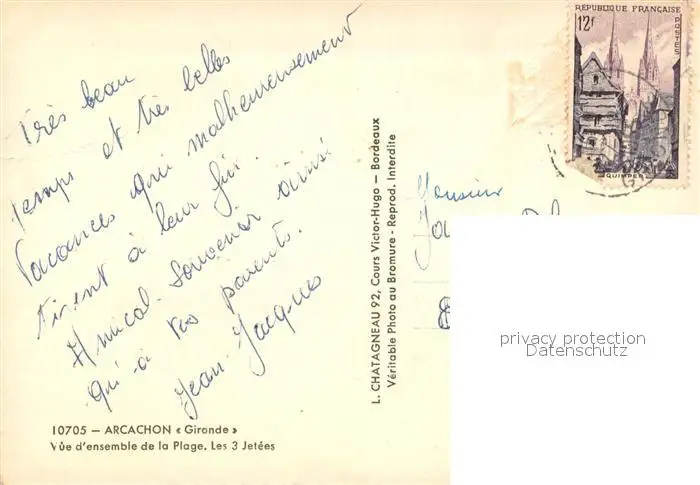 Très beau
temps et très belles
Vacances qui malheureusement
tirent à leur fin.
Amical Souvenir ainsi
qui à vos parents.
Jean-Jacques
10705 — ARCACHON « Gironde »
Vue d'ensemble de la Plage. Les 3 Jetées
L. CHATAGNEAU 92, Cours Victor-Hugo — Bordeaux
Véritable Photo au Bromure - Reprod. Interdite
REPUBLIQUE FRANÇAISE
12F
POSTES
QUIMPER
Monsieur
privacy protection
Datenschutz